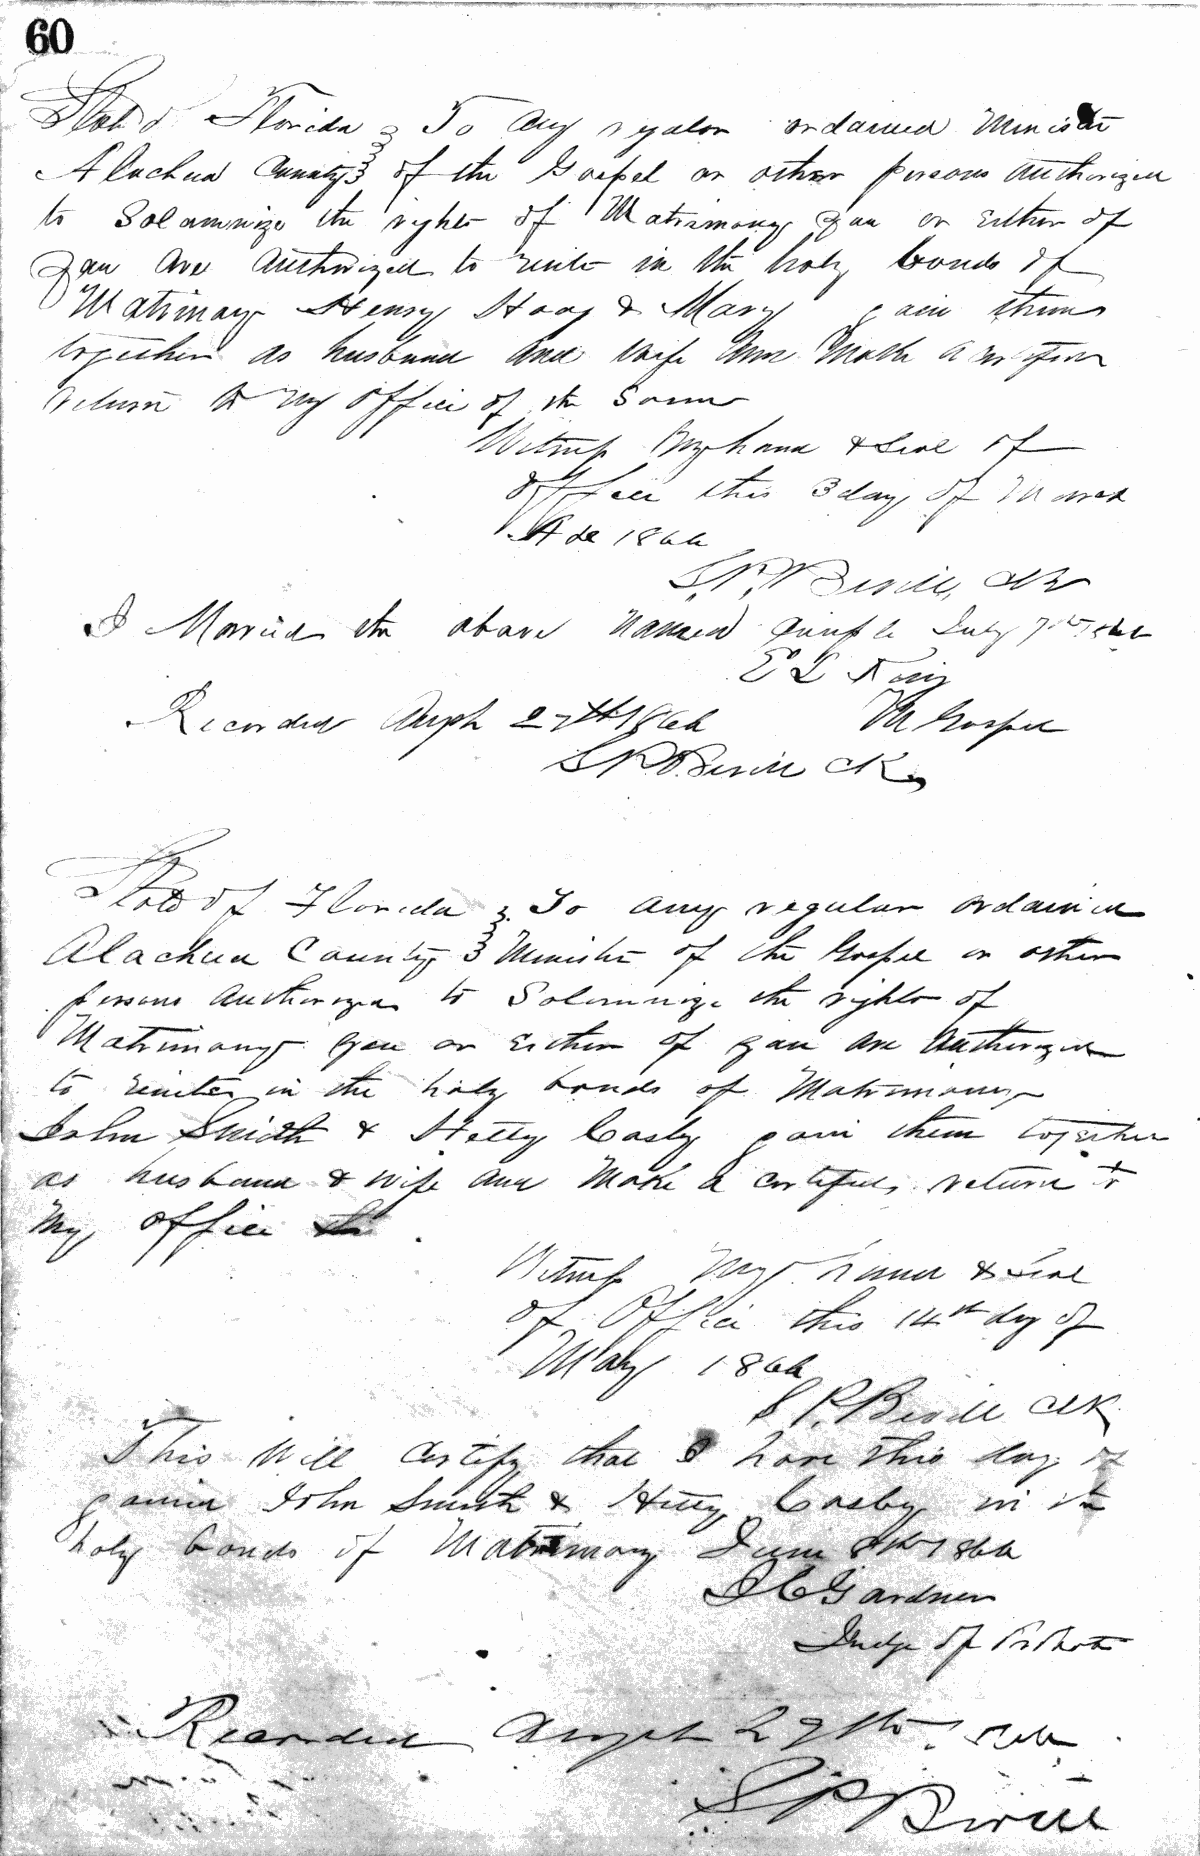 60
State of Florida } To any regular ordained Minister
Alachua County } of the Gospel or other persons authorized
to Solemnize the rights of Matrimony you or Either of
you are authorized to unite in the holy bonds of
Matrimony Henry Hoag & Mary join them
together as husband and wife and make a
return to my office of the Same
Witness my hand & Seal of
office this 3 day of March
AD 1866
S. P. Bevill, Clk
I Married the above named couple July 7th 1866
E L King
M Gospel
Recorded August 27th 1866
S P Bevill Clk
State of Florida } To any regular ordained
Alachua County } Minister of the Gospel or other
persons authorized to Solemnize the rights of
Matrimony you or Either of you are authorized
to unite in the holy bonds of Matrimony
John Smith & Hetty Casby join them together
as husband & wife and make a return to
my office
Witness my hand & Seal
of Office this 14th day of
May 1866
S P. Bevill Clk
This will certify that I have this day
joined John Smith & Hetty Casby in the
holy bonds of Matrimony June 8th 1866
J C Gardner
Judge of Probate
Recorded August 27th 1866
S P Bevill